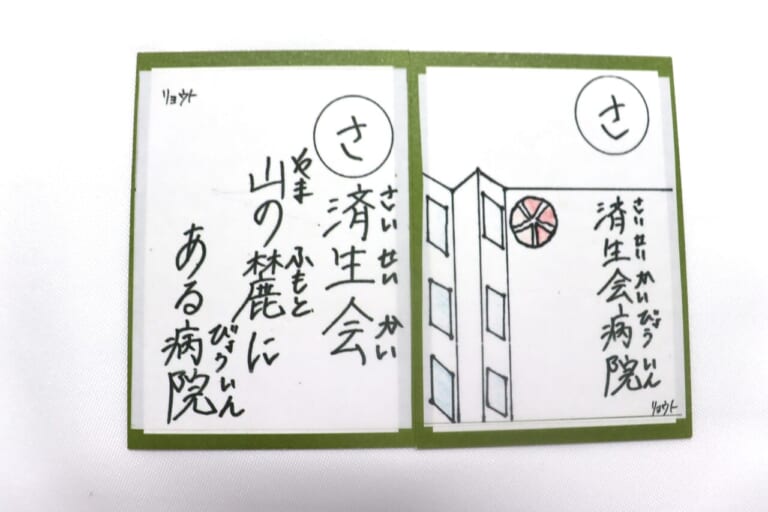 リョウト
さ
済生会
さいせいかい
山の麓に
やま ふもと
ある病院
びょういん
さ
済生会病院
さいせいかいびょういん
リョウト